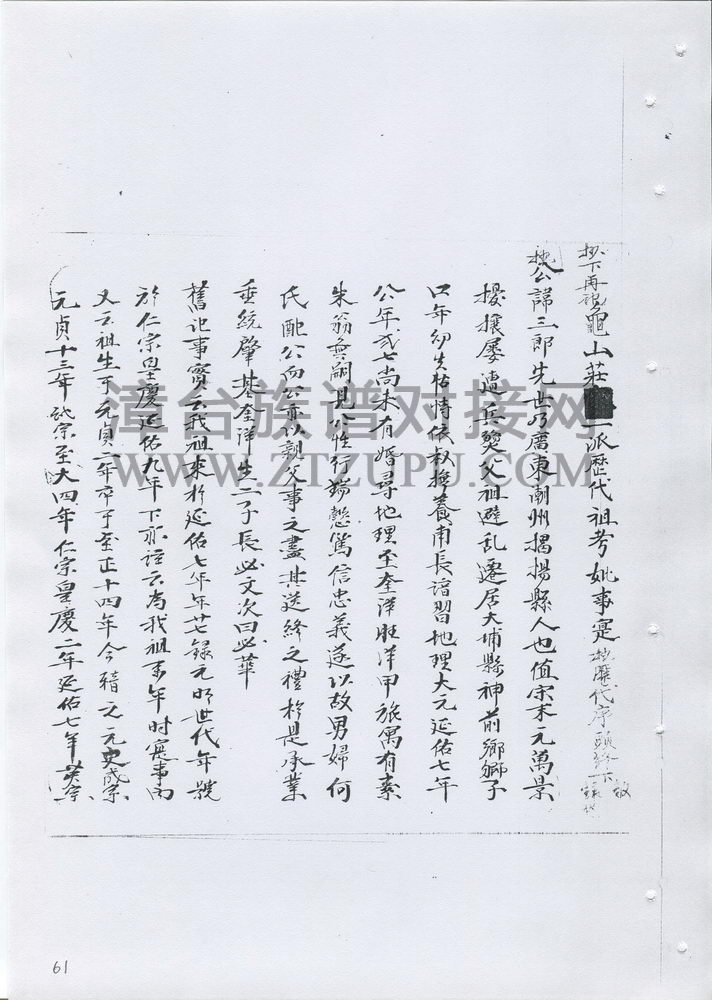 龜山莊一派歷代祖考妣事寔
公諱三郎先世乃廣東潮州揭揚縣人也值宋末元萬景
擾攘屡遭兵燹父祖避乱遷居大埔縣神前鄉獅子
口年幼失怙恃依叔撫養甫長諳習地理大元延佑七年
公年弍七尚未有婚尋地理至奎洋旺洋甲旅寓有素
朱翁無嗣見公性行端慤篤信忠義遂以故男婦何
氏配公而公亦以親父事之盡其送終之禮於是承業
垂統肇基奎洋生二子長必文次曰必華
舊記事實云我祖來於延佑七年年廿七錄元明世代年號
於仁宗皇慶延佑九年下亦註云為我祖來年时寔事而
又云祖生于元貞二年卒于至正十四年今稽之元史成宗
元貞十三年武宗至大四年仁宗皇慶二年延佑七年英宗
漳台族谱对接网
WWW.ZTZUPU.COM
61